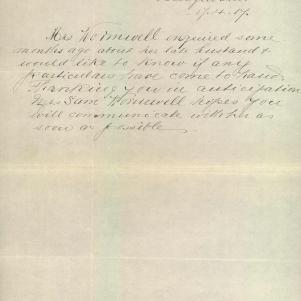 6/4/19.
Mrs Wormwell enquired some
months ago about her late husband &
would like to know if any
particulars have come to hand.
Thanking you in anticipation
Mrs Sam Wormwell hopes you
will communicate with her as
soon as possible